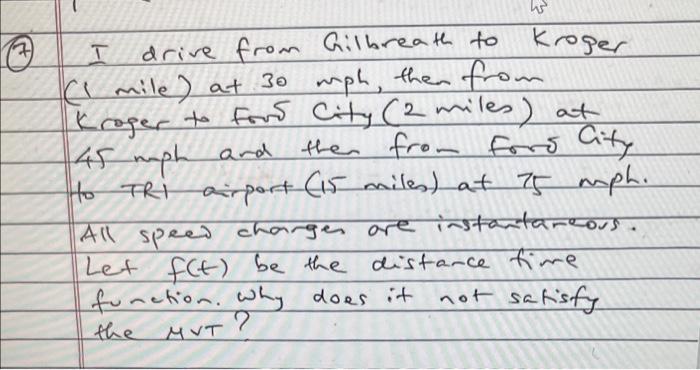 7 I drive from Gilbreath to Kroger
(1 mile) at 30 mph, then from
Kroger to Ford City (2 miles) at
45 mph and then from Ford City
to TRI airport (15 miles) at 75 mph.
All speed changes are instantaneous.
Let f(t) be the distance time
function. Why does it not satisfy
the MVT?